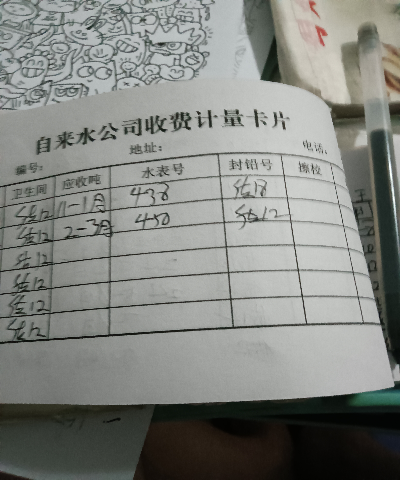 自来水公司收费计量卡片
编号: 地址: 电话:
卫生间 应收吨 水表号 封铅号 擦校
12 11-1月 438 18
12 2-3月 450 12
12
12
12
12